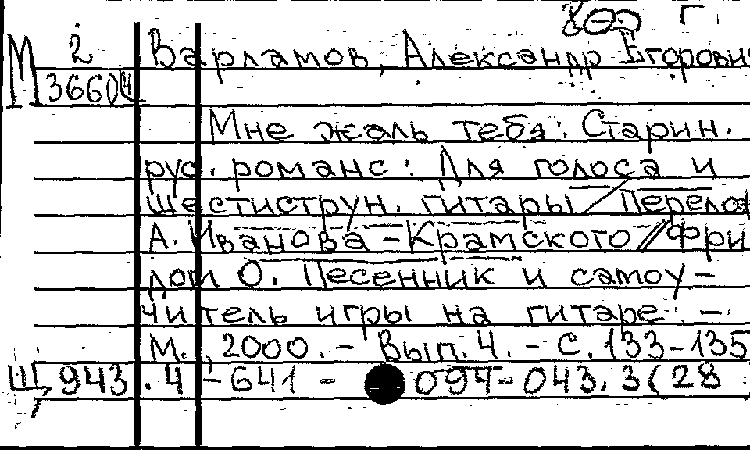 800 г.
М 2 Варламов, Александр Егорови
36604
Мне жаль тебя: Старин.
рус. романс: Для голоса и
шестиструн. гитары / Перелож
А. Иванова-Крамского // Фри
дом О. Песенник и самоу-
читель игры на гитаре. -
М., 2000. - Вып. 4. - С. 133-135
Щ, 943.4-641 - 094-043.3(28